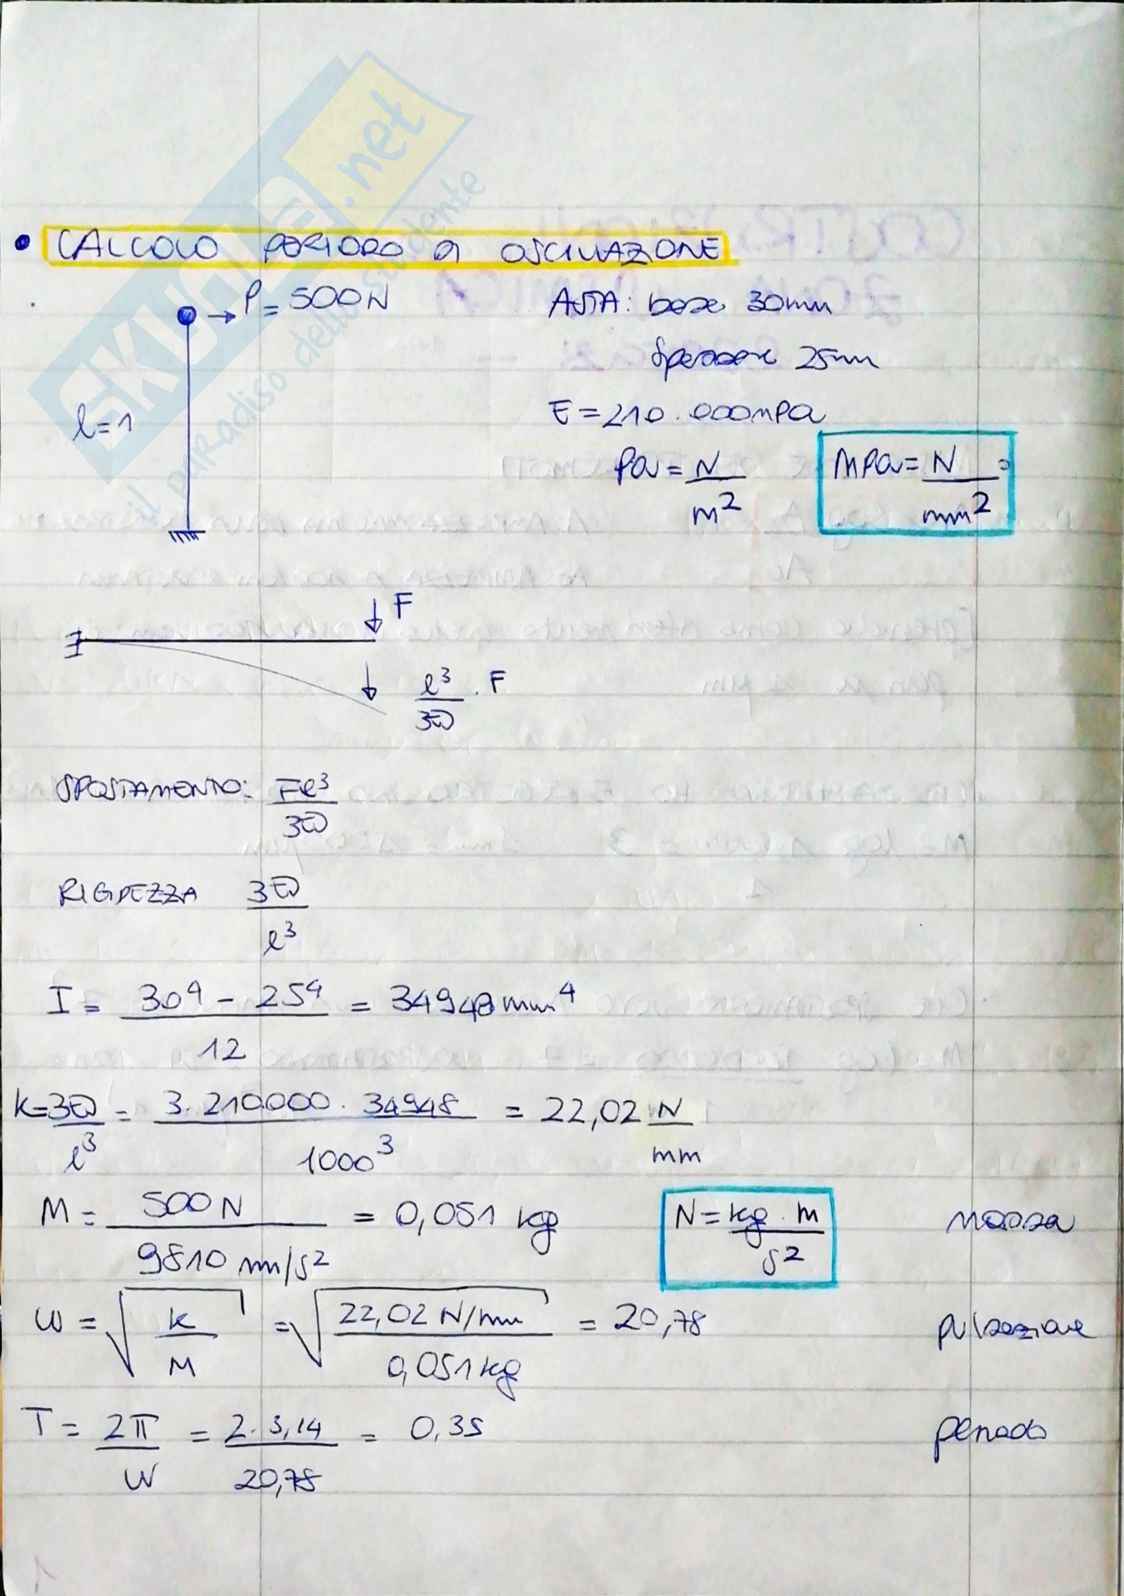 SKUOLA.net
il paradiso dello studente
• CALCOLO PERIODO DI OSCILLAZIONE
P = 500N
l = 1
ASTA: base 30mm
Spessore 25mm
E = 210.000MPa
Pa = N/m²
MPa = N/mm²
F
l³/3EI · F
SPOSTAMENTO: Fl³/3EI
RIGIDEZZA 3EI/l³
I = (30⁴ - 25⁴)/12 = 34948mm⁴
k = 3EI/l³ = (3. 210.000. 34948)/1000³ = 22,02 N/mm
M = 500N/9810 mm/s² = 0,051 kg
N = kg . m/s²
massa
W = √(k/M) = √(22,02 N/mm/0,051kg) = 20,78
pulsazione
T = 2π/W = 2. 3,14/20,78 = 0,3s
periodo
1